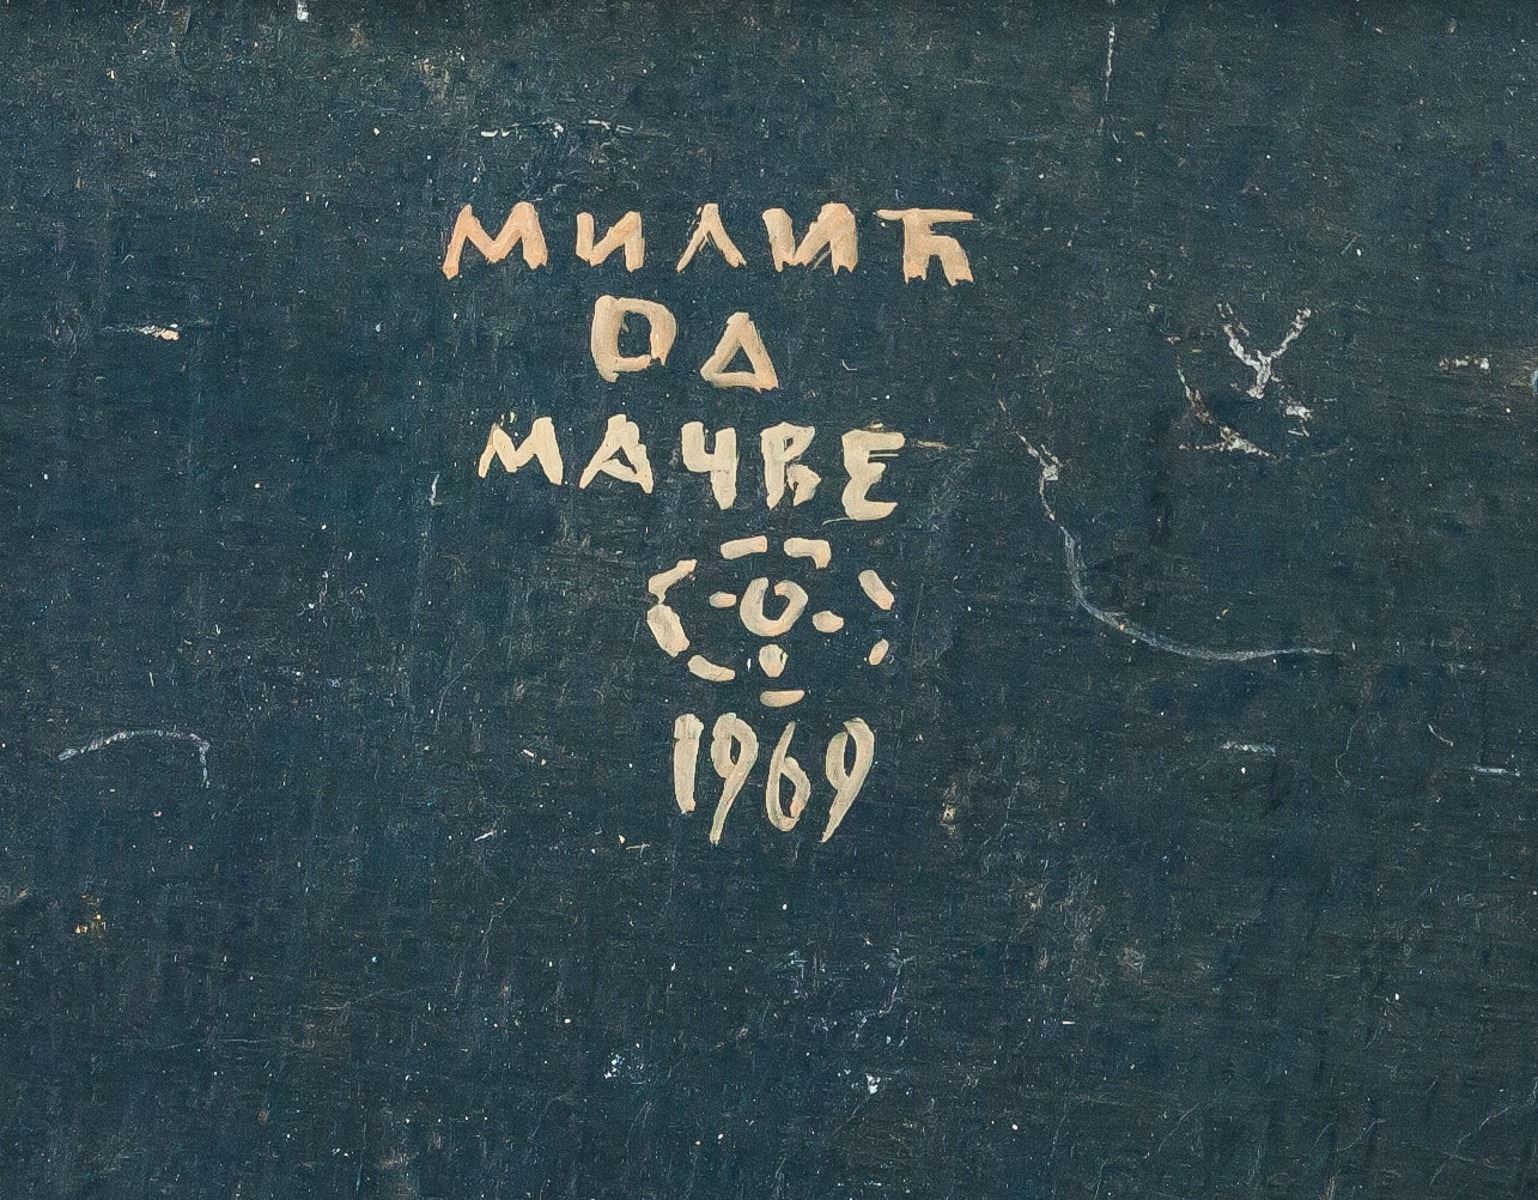 МИЛИЋ
ОД
МАЧВЕ
1969